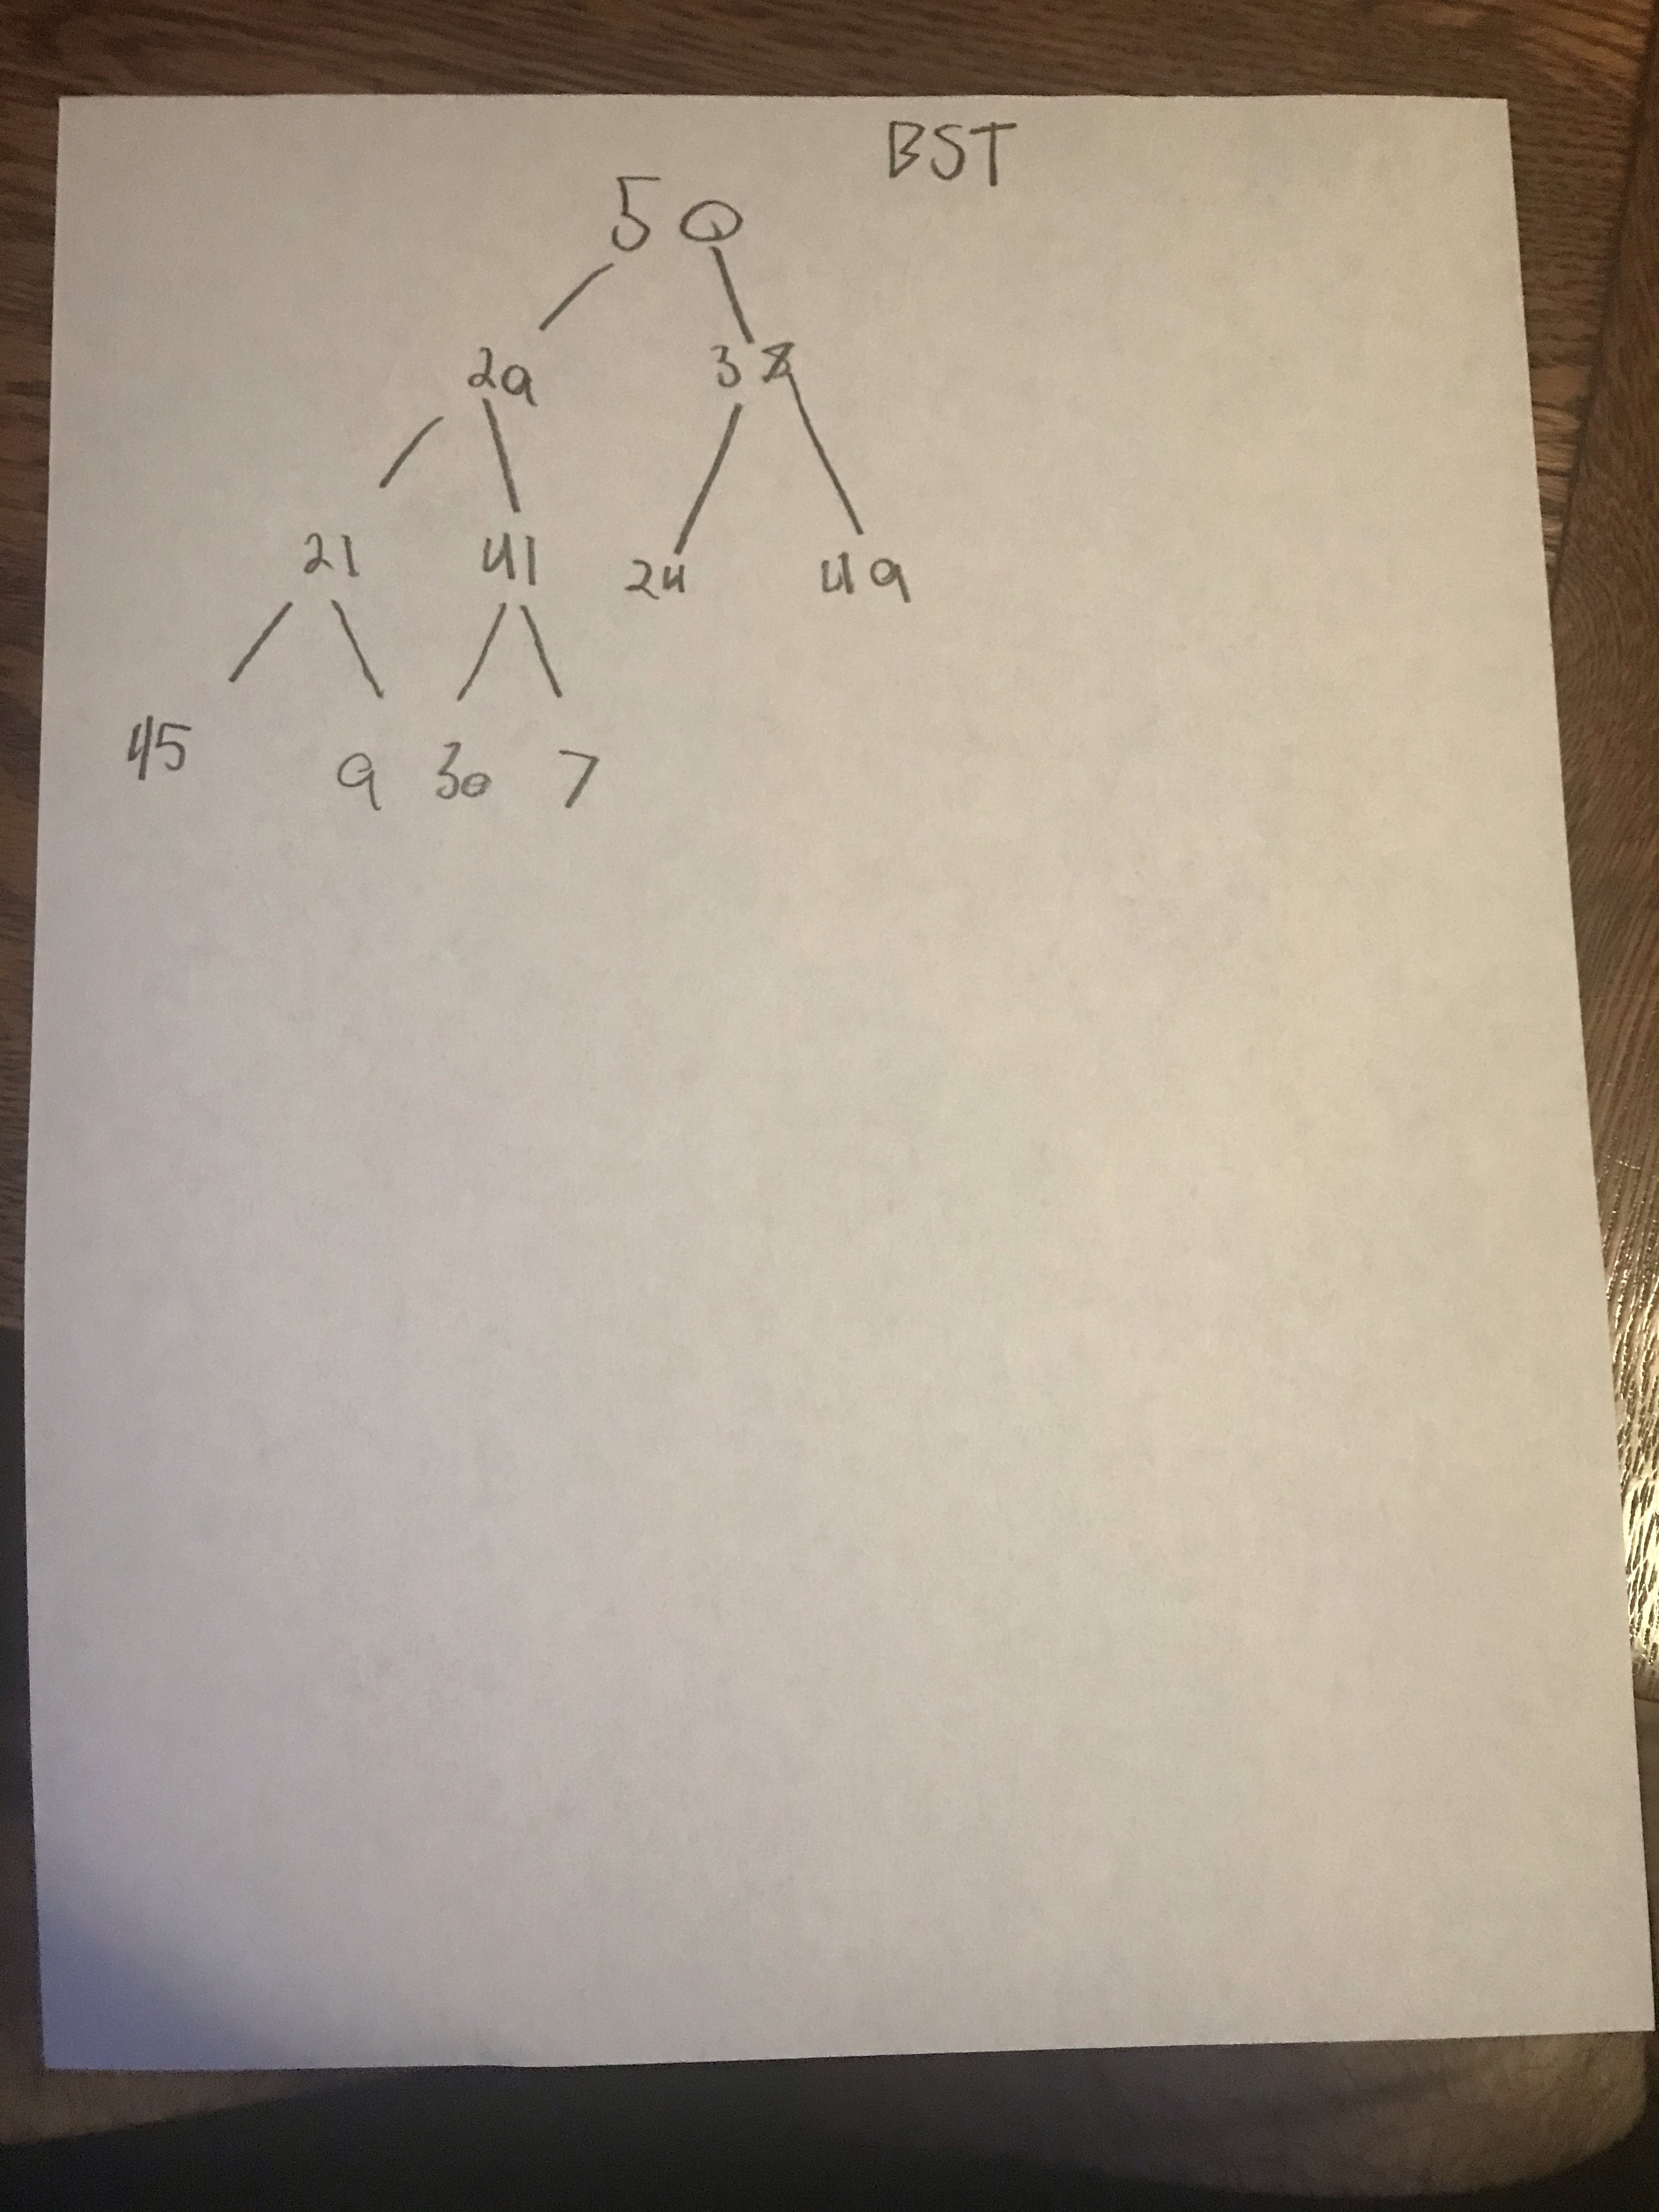 BST
50
29 38
21 41 24 49
45 9 30 7